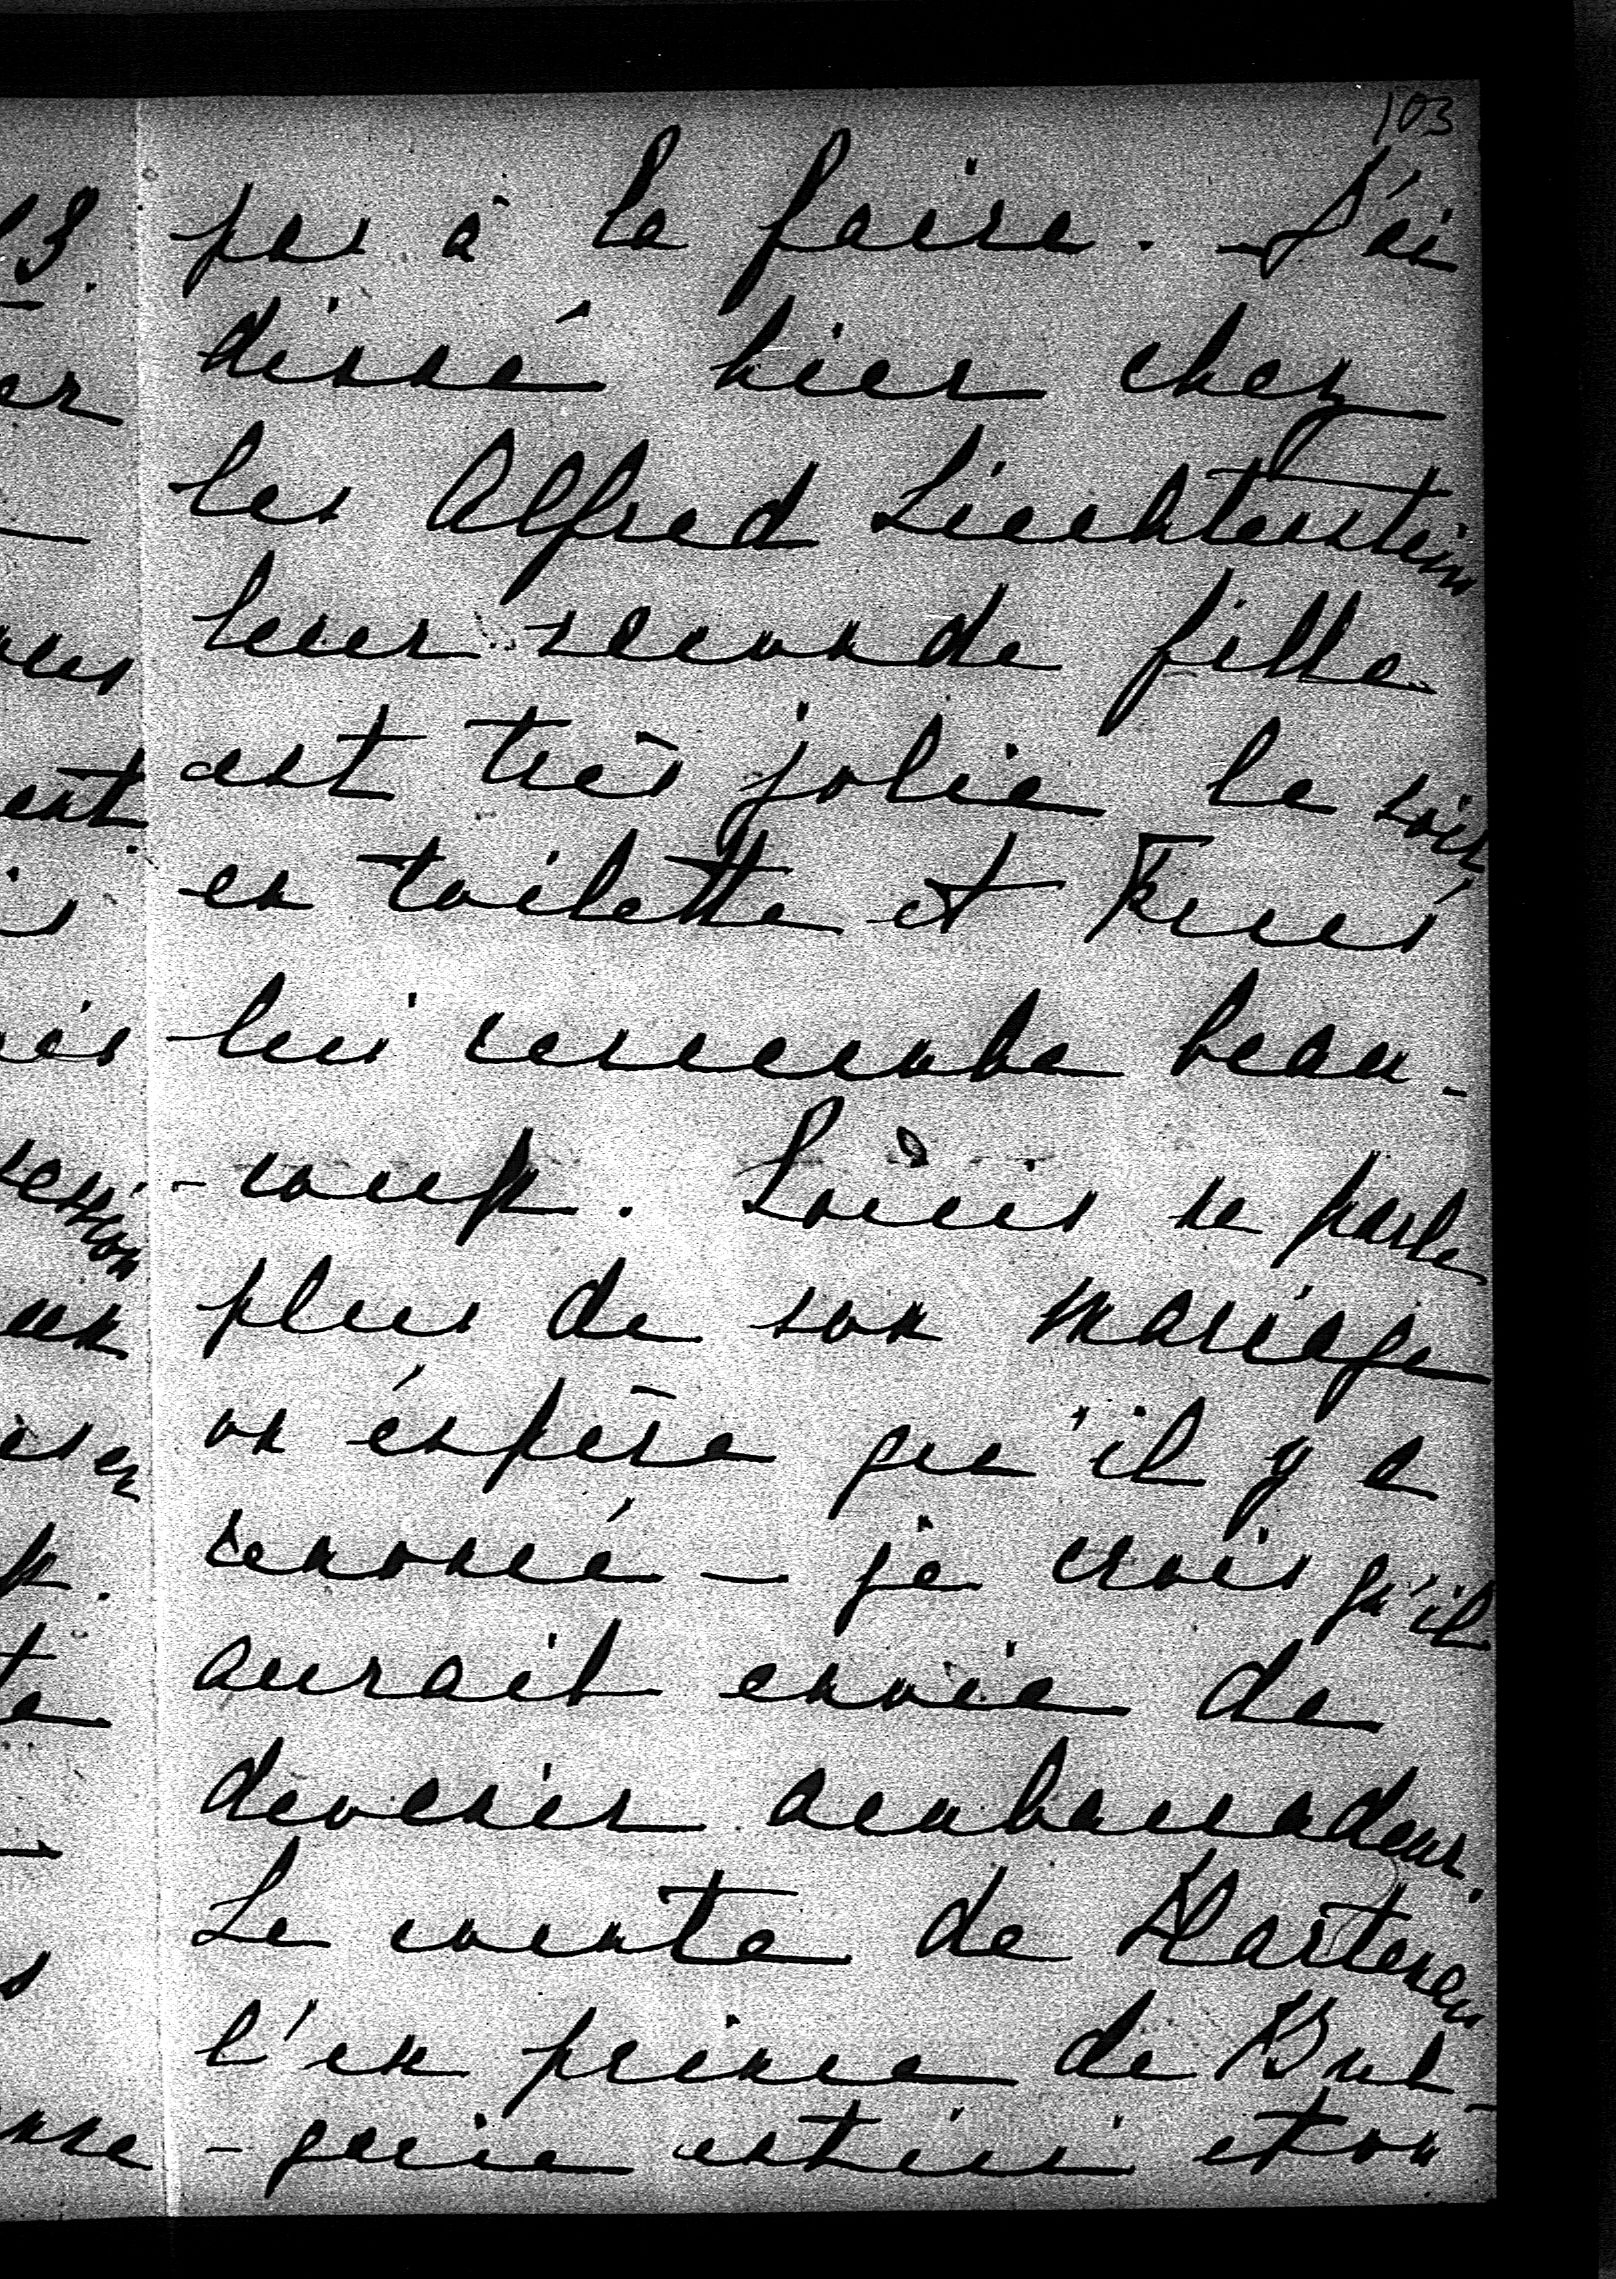 103
pas à la faire. - J'ai
dinné hier chez
les Alfred Liechtenstein
leur seconde fille
est très jolie le soir
en toilette et
lui ressemble beau-
-coup. Louis ne parle
plus de son mariage
on éspère que'il y a
renoncé - je crois qu'il
aurait envie de
devenir ambassadeur.
Le comte de Hartenau
l'ex prince de Bul-
-garie est ici et on